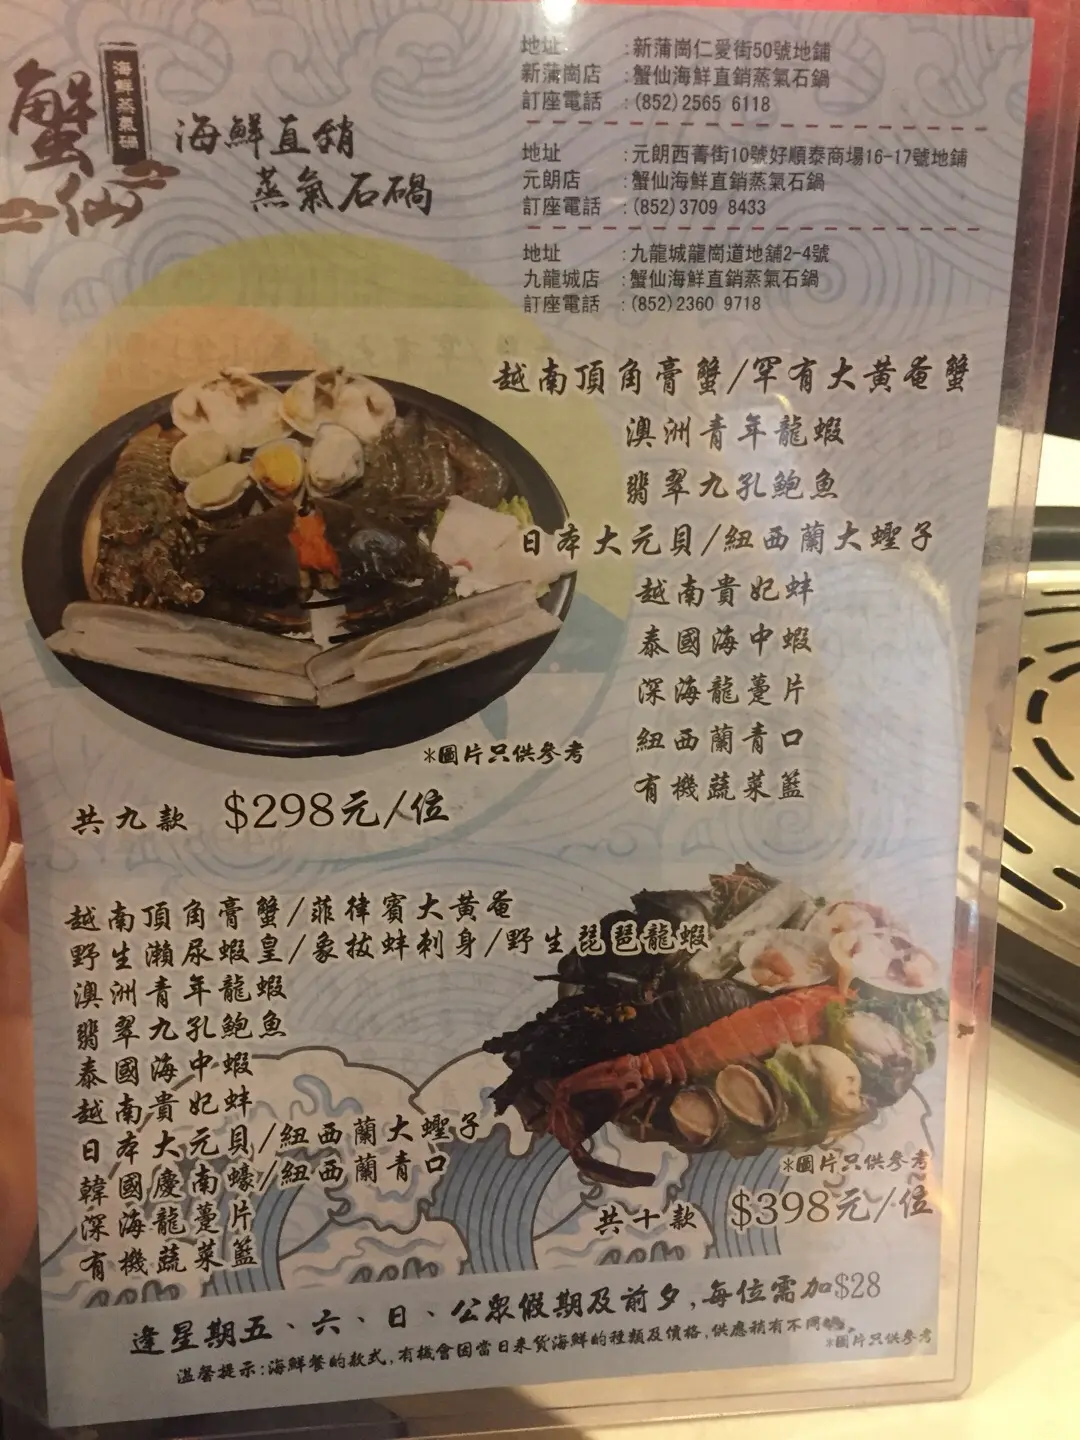 蟹仙
海鮮蒸氣鍋
海鮮直銷
蒸氣石鍋
地址 :新蒲崗仁愛街50號地鋪
新蒲崗店 :蟹仙海鮮直銷蒸氣石鍋
訂座電話 :(852)2565 6118
地址 :元朗西菁街10號好順泰商場16-17號地鋪
元朗店 :蟹仙海鮮直銷蒸氣石鍋
訂座電話 :(852)3709 8433
地址 :九龍城龍崗道地舖2-4號
九龍城店 :蟹仙海鮮直銷蒸氣石鍋
訂座電話 :(852)2360 9718
越南頂角膏蟹/罕有大黃奄蟹
澳洲青年龍蝦
翡翠九孔鮑魚
日本大元貝/紐西蘭大蟶子
越南貴妃蚌
泰國海中蝦
深海龍躉片
紐西蘭青口
有機蔬菜籃
*圖片只供參考
共九款 $298元/位
越南頂角膏蟹/菲律賓大黃奄
野生瀨尿蝦皇/象拔蚌刺身/野生琵琶龍蝦
澳洲青年龍蝦
翡翠九孔鮑魚
泰國海中蝦
越南貴妃蚌
日本大元貝/紐西蘭大蟶子
韓國慶南蠔/紐西蘭青口
深海龍躉片
有機蔬菜籃
*圖片只供參考
共十款 $398元/位
逢星期五、六、日、公眾假期及前夕,每位需加$28
溫馨提示:海鮮餐的款式,有機會因當日來貨海鮮的種類及價格,供應稍有不同
*圖片只供參考